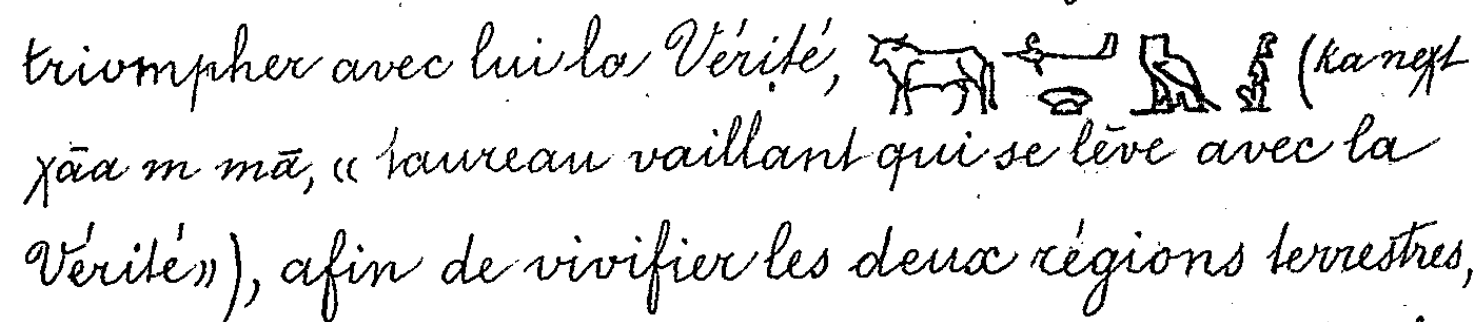 triompher avec lui la Vérité, 𓃒𓂡𓈍𓅓𓁦 (ka neχt
χāa m mā, « taureau vaillant qui se lève avec la
Vérité »), afin de vivifier les deux régions terrestres,